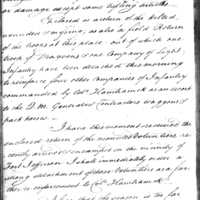 or damage except some trifling articles
Enclosed a return of the killed,
wounded & missing, as also a field Return
of the troops at this place out of which one
troop of Dragoons & one Company of Light
Infantry have been detached this morning
to reinforce four other Companies of Infantry
commanded by Colo Hamtramck as an escort
to the Q.M. Generals & Contractors waggons &
pack horses
I have this moment received the
enclosed return of the mounted Volunteers, re-
cently arrived & encamped in the vicinity of
Fort Jefferson. I shall immediately order a
strong detachment of those Volunteers as a far-
ther reinforcement to Colo Hamtramck.
the season is so far